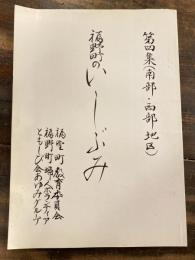 第四集(南部・西部地区)
福野町のいしぶみ
福野町教育委員会
福野町婦人ボランティア
ともしび会あゆみグループ